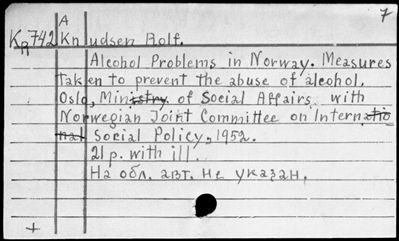 A
7
Kя742 Knudsen Rolf.
Alcohol Problems in Norway. Measures
taken to prevent the abuse of alcohol.
Oslo, Ministry of Social Affairs with
Norwegian Joint Committee on Internatio
nal Social Policy, 1952.
21 p. with ill.
На обл. авт. не указан.
+